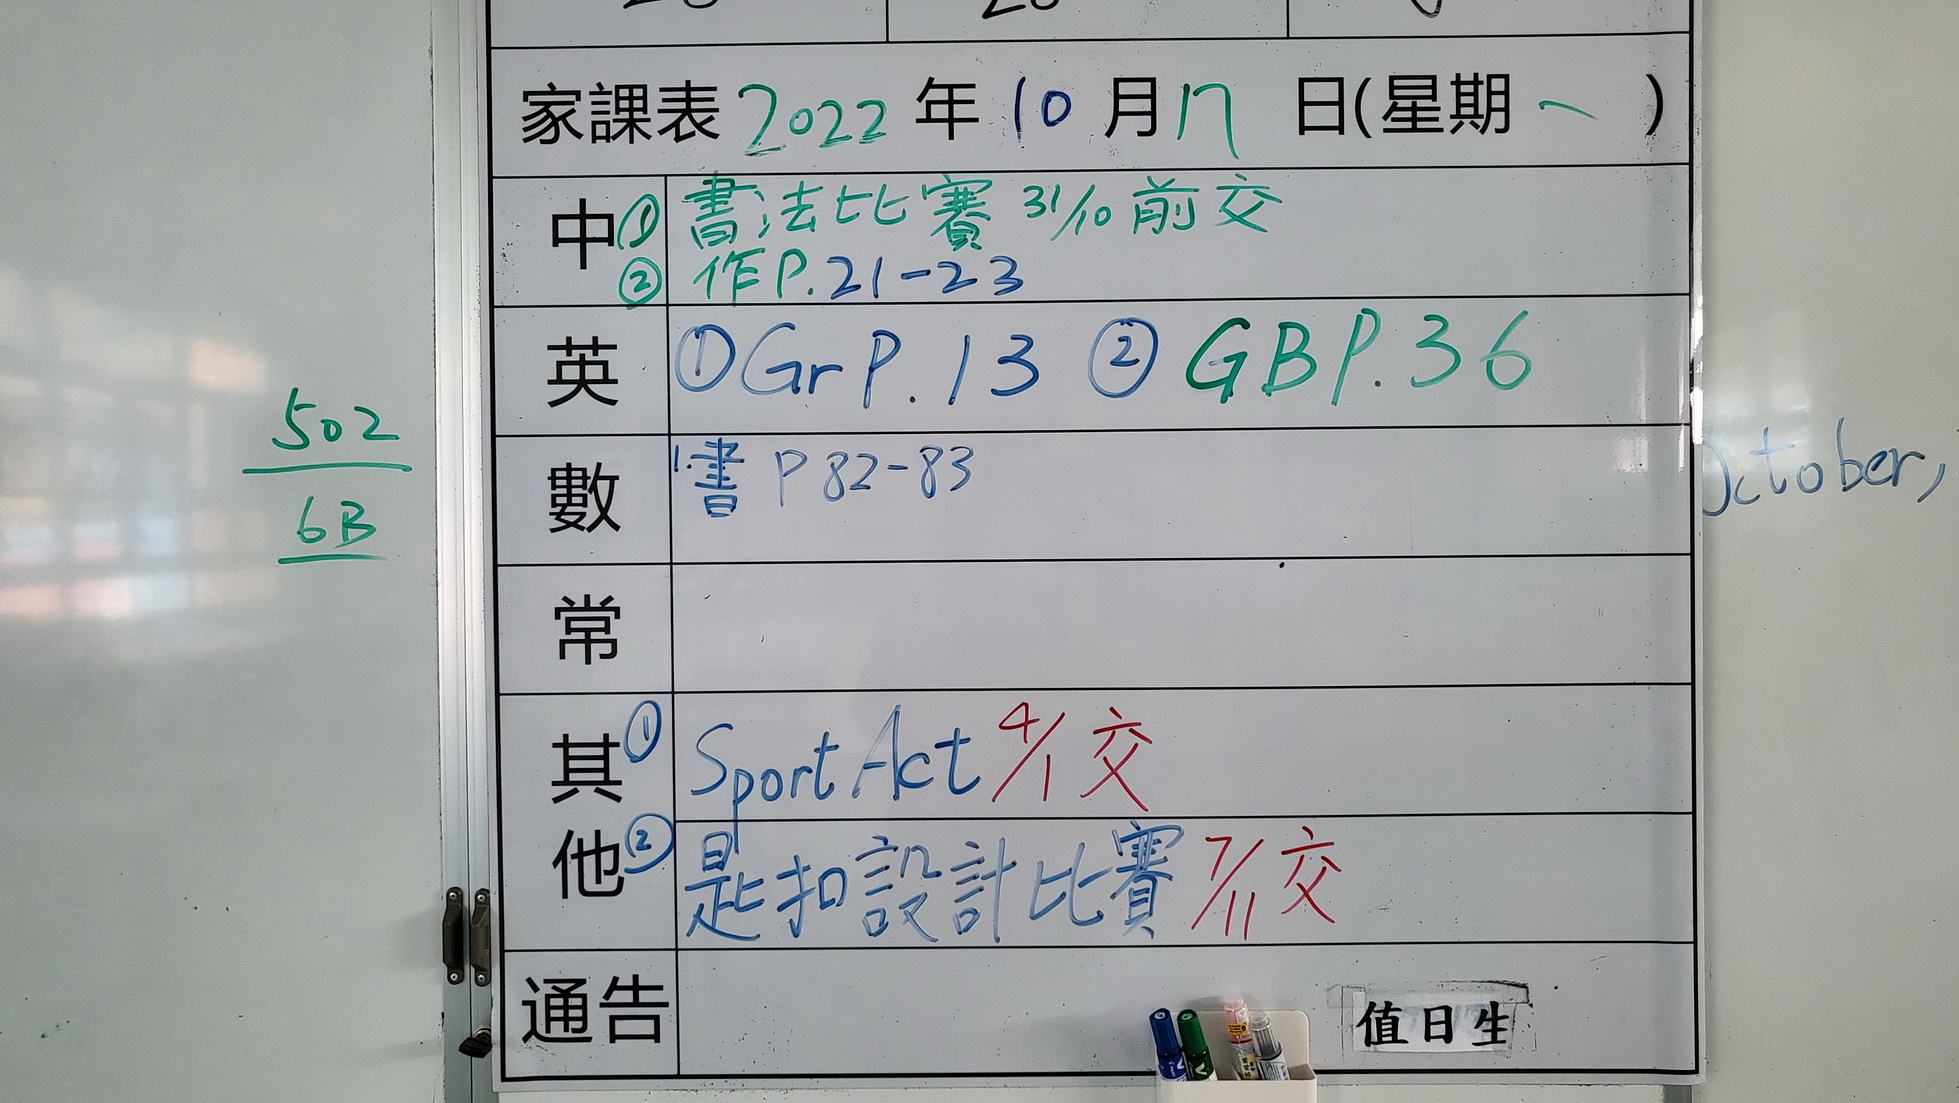 家課表 2022 年 10 月 17 日(星期一)
中 ① 書法比賽 31/10 前交
② 作P.21-23
英 ① Gr P.13 ② GB P.36
數 1. 書 P 82-83
常
其他 ① Sport Act 4/1 交
② 匙扣設計比賽 7/11 交
通告
值日生
502
6B
October,